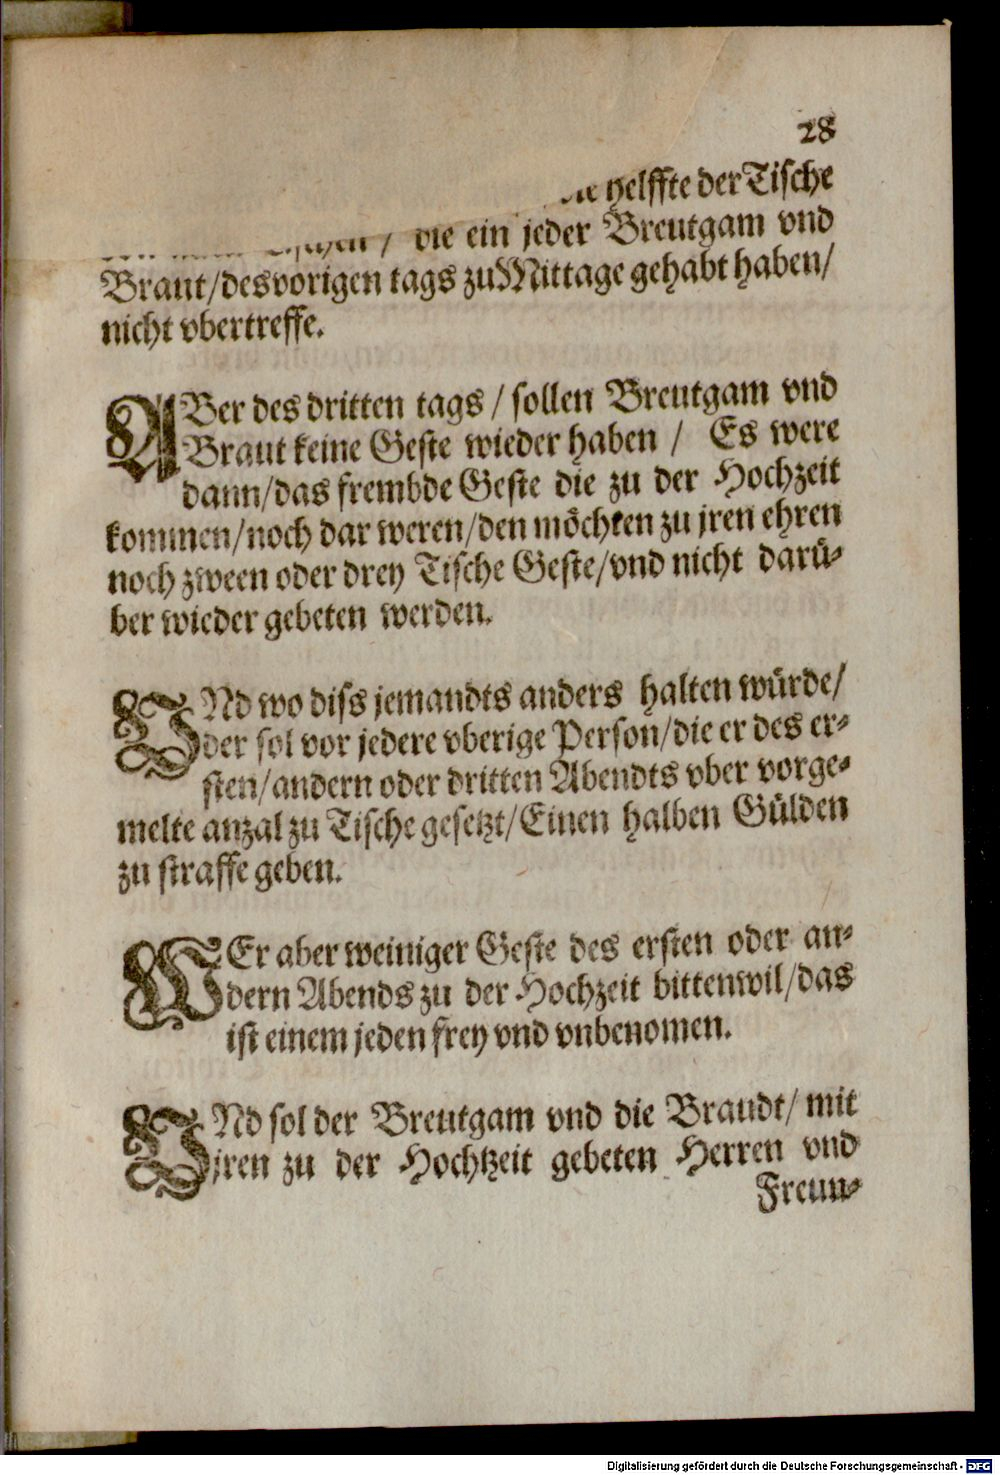 28
helffte der Tische
/ die ein jeder Breutgam vnd
Braut/des vorigen tags zu Mittage gehabt haben/
nicht vbertreffe.
ABer des dritten tags / sollen Breutgam vnd
Braut keine Geste wieder haben / Es were
dann/das frembde Geste die zu der Hochzeit
kommen/noch dar weren/den möchten zu jren ehren
noch zween oder drey Tische Geste/vnd nicht darü-
ber wieder gebeten werden.
VNd wo diss jemandts anders halten würde/
der sol vor jedere vberige Person/die er des er-
sten/andern oder dritten Abendts vber vorge-
melte anzal zu Tische gesetzt/Einen halben Gülden
zu straffe geben.
WEr aber weiniger Geste des ersten oder an-
dern Abends zu der Hochzeit bitten wil/das
ist einem jeden frey vnd vnbenomen.
VNd sol der Breutgam vnd die Braudt/ mit
jren zu der Hochtzeit gebeten Herren vnd
Freun-
Digitalisierung gefördert durch die Deutsche Forschungsgemeinschaft - DFG